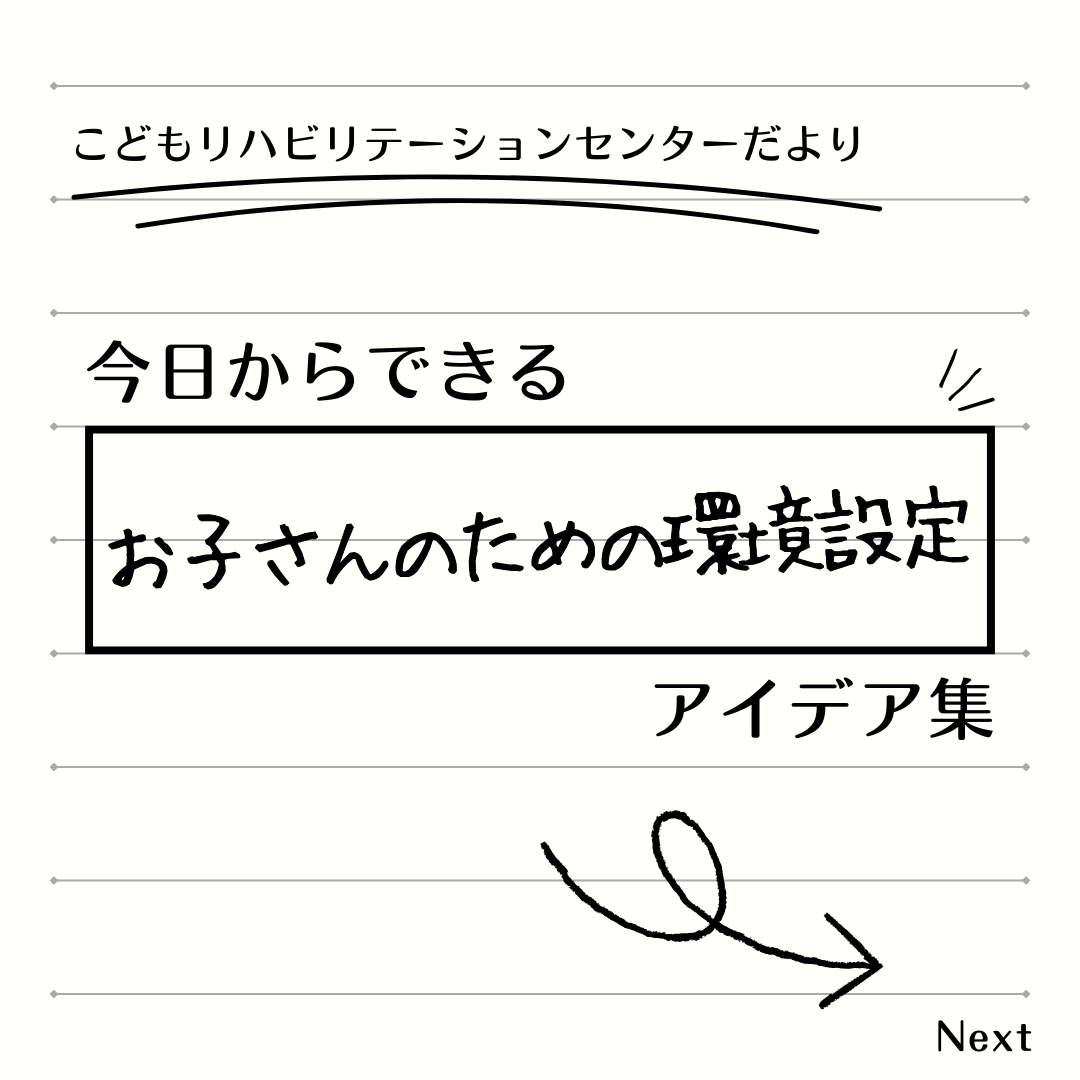 こどもリハビリテーションセンターだより
今日からできる
お子さんのための環境設定
アイデア集
Next